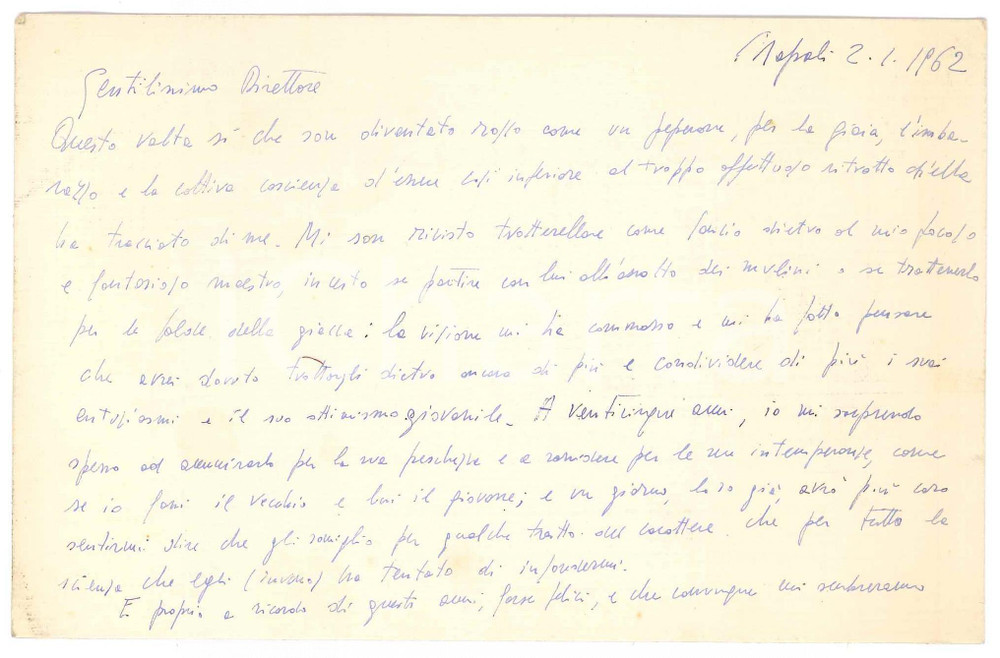 Napoli 2.1.1962
Gentilissimo Direttore
Questa volta sì che son diventato rosso come un peperone, per la gioia, l'imba-
razzo e la cattiva coscienza d'esser così inferiore al troppo affettuoso ritratto ch'ella
ha tracciato di me. Mi son rivisto trotterellare come Sancio dietro al mio focoso
e fantasioso maestro, incerto se partire con lui all'assalto dei mulini o se trattenerlo
per le falde della giacca: la visione mi ha commosso e mi ha fatto pensare
che avrei dovuto trottargli dietro ancora di più e condividere di più i suoi
entusiasmi e il suo ottimismo giovanile. A venticinque anni, io mi sorprendo
spesso ad ammirarlo per la sua freschezza e a sorridere per le sue intemperanze, come
se io fossi il vecchio e lui il giovane; e un giorno, lo so già, avrò più caro
sentirmi dire che gli somiglio per qualche tratto del carattere che per tutta la
scienza che egli (invano) ha tentato di infondermi.
E proprio a ricordo di questi anni, forse felici, e che comunque mi sembreranno